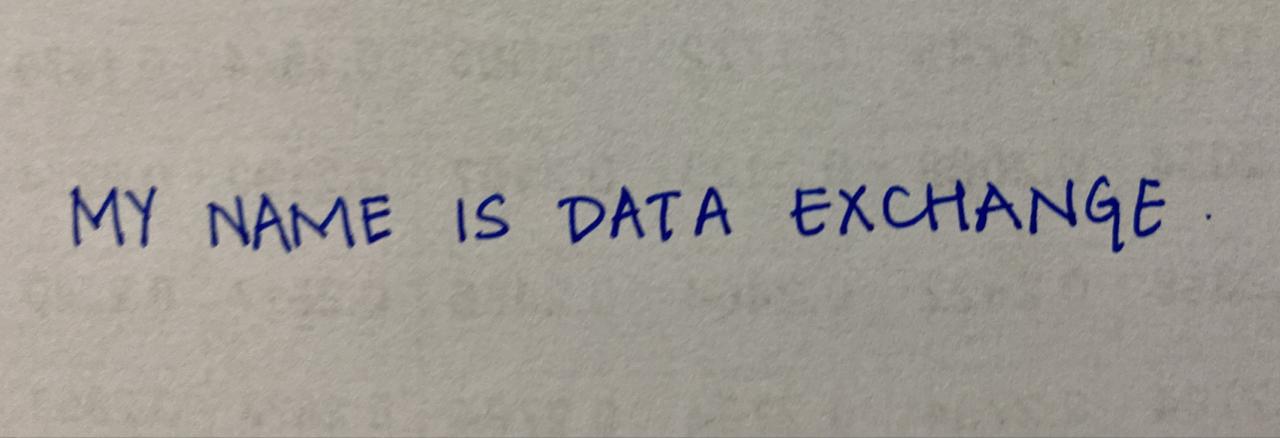 MY NAME IS DATA EXCHANGE.